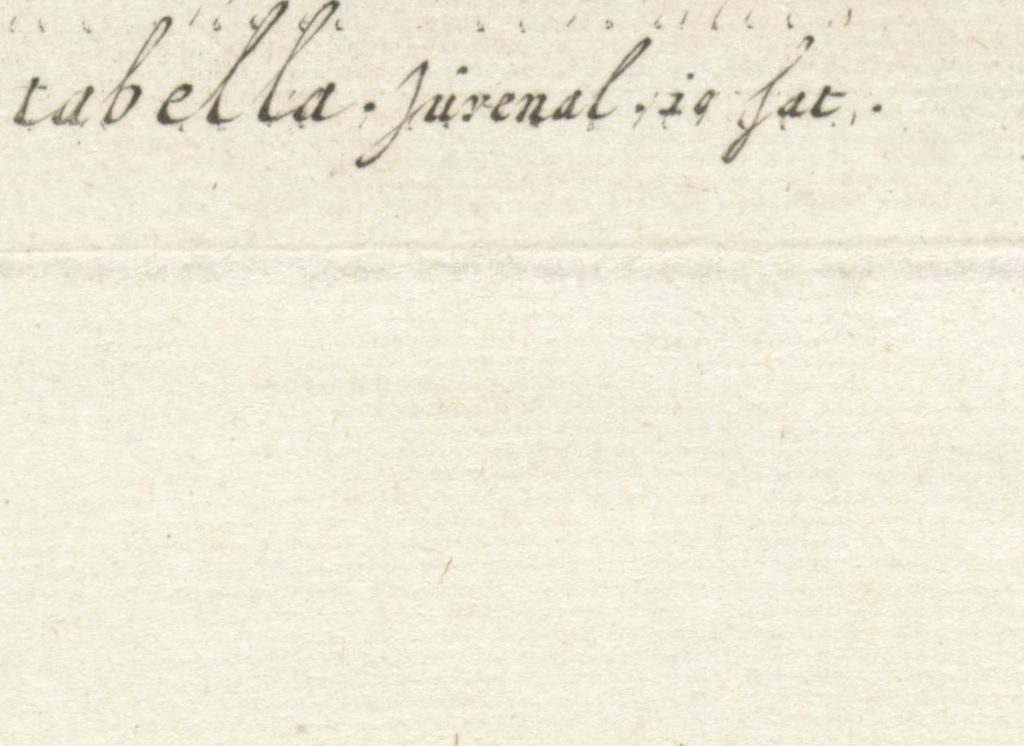 tabella. Juvenal. 10 sat.